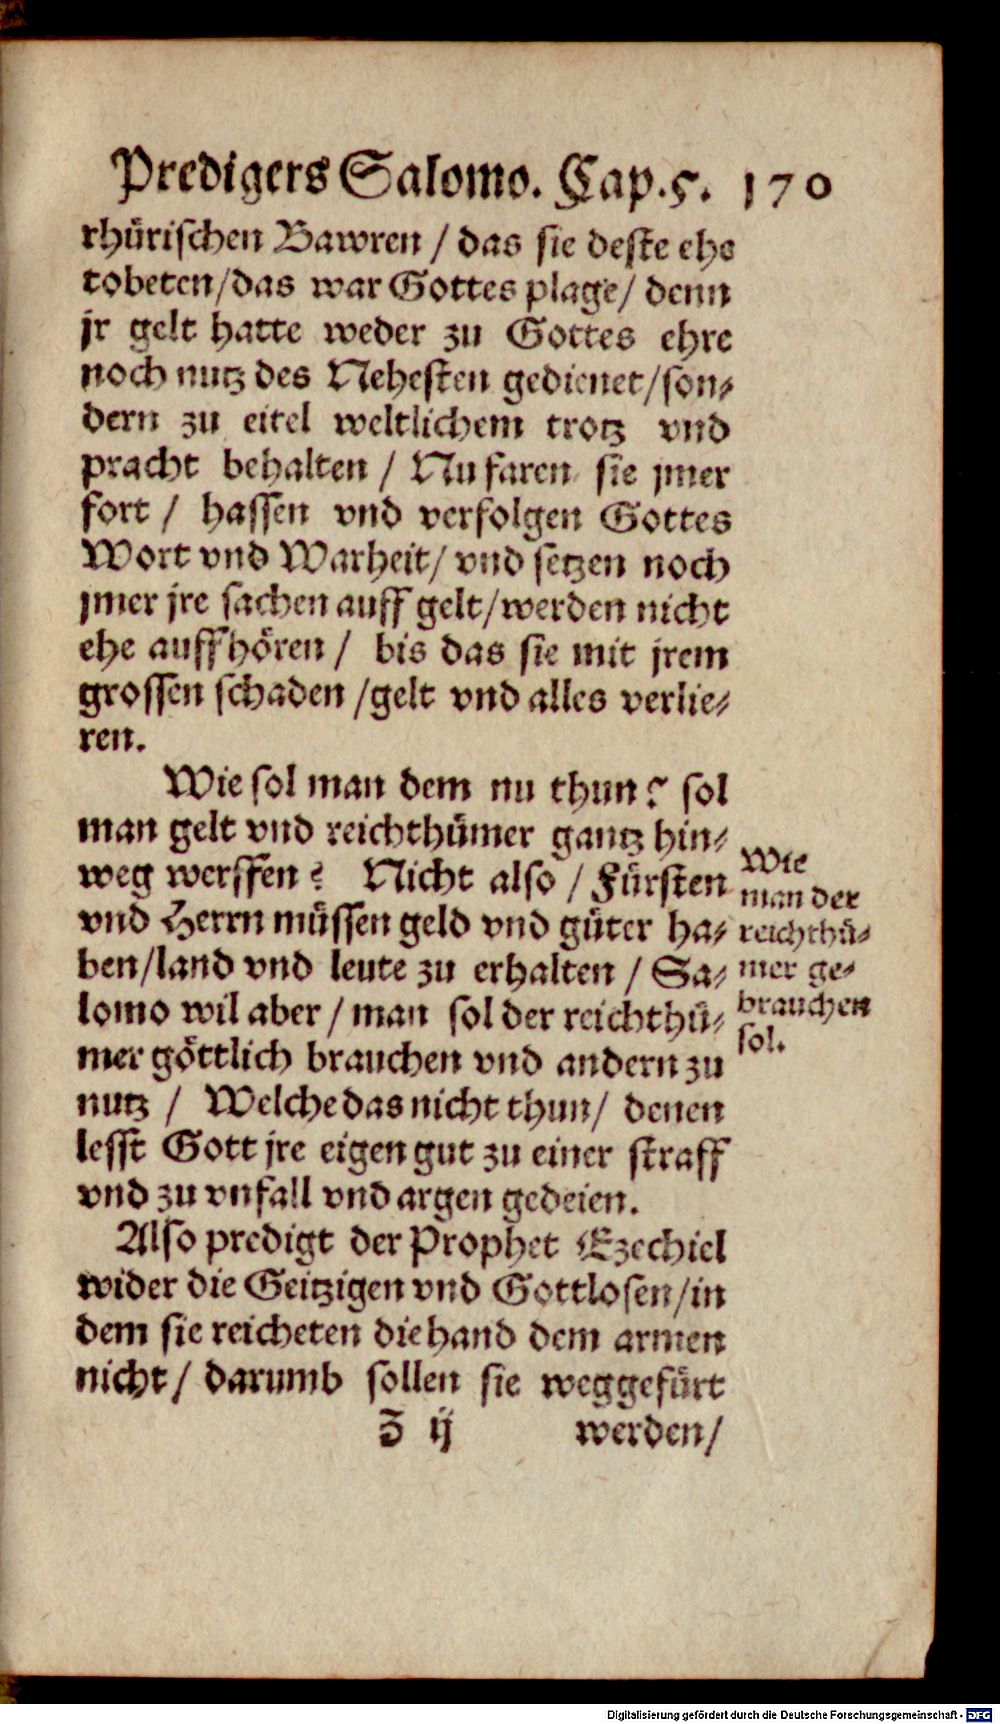 Predigers Salomo. Cap. 5. 170
rhürischen Bawren / das sie deste ehe
tobeten / das war Gottes plage / denn
jr gelt hatte weder zu Gottes ehre
noch nutz des Nehesten gedienet / son⸗
dern zu eitel weltlichem trotz vnd
pracht behalten / Nu faren sie jmer
fort / hassen vnd verfolgen Gottes
Wort vnd Warheit / vnd setzen noch
jmer jre sachen auff gelt / werden nicht
ehe auffhören / bis das sie mit jrem
grossen schaden / gelt vnd alles verlie⸗
ren.
Wie sol man dem nu thun? sol
man gelt vnd reichthümer gantz hin⸗
weg werffen? Nicht also / Fürsten
vnd Herrn müssen geld vnd güter ha⸗
ben / land vnd leute zu erhalten / Sa⸗
lomo wil aber / man sol der reichthü⸗
mer göttlich brauchen vnd andern zu
nutz / Welche das nicht thun / denen
lesst Gott jre eigen gut zu einer straff
vnd zu vnfall vnd argen gedeien.
Also predigt der Prophet Ezechiel
wider die Geitzigen vnd Gottlosen / in
dem sie reicheten die hand dem armen
nicht / darumb sollen sie weggefürt
Z ij werden /
Wie
man der
reichthü⸗
mer ge⸗
brauchen
sol.
Digitalisierung gefördert durch die Deutsche Forschungsgemeinschaft - DFG